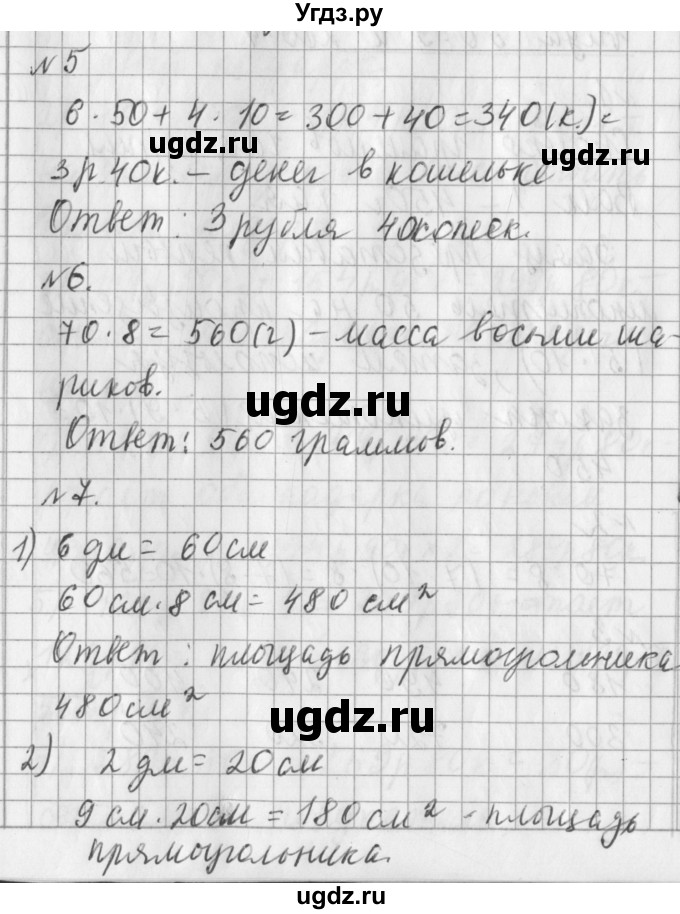 Угдз.ру
№5
6 · 50 + 4 · 10 = 300 + 40 = 340 (к.) =
ugdz.ru ugdz.ru
3 р 40 к. – денег в кошельке
Ответ: 3 рубля 40 копеек.
№6.
70 · 8 = 560 (г) – масса восьми ша-
риков.
ugdz.ru
Ответ: 560 граммов.
№7.
1) 6 дм = 60 см
60 см · 8 см = 480 см²
Ответ: площадь прямоугольника
480 см²
ugdz.ru
2) 2 дм = 20 см
9 см · 20 см = 180 см² - площадь
ugdz.ru ugdz.ru
прямоугольника.
ugdz.ru